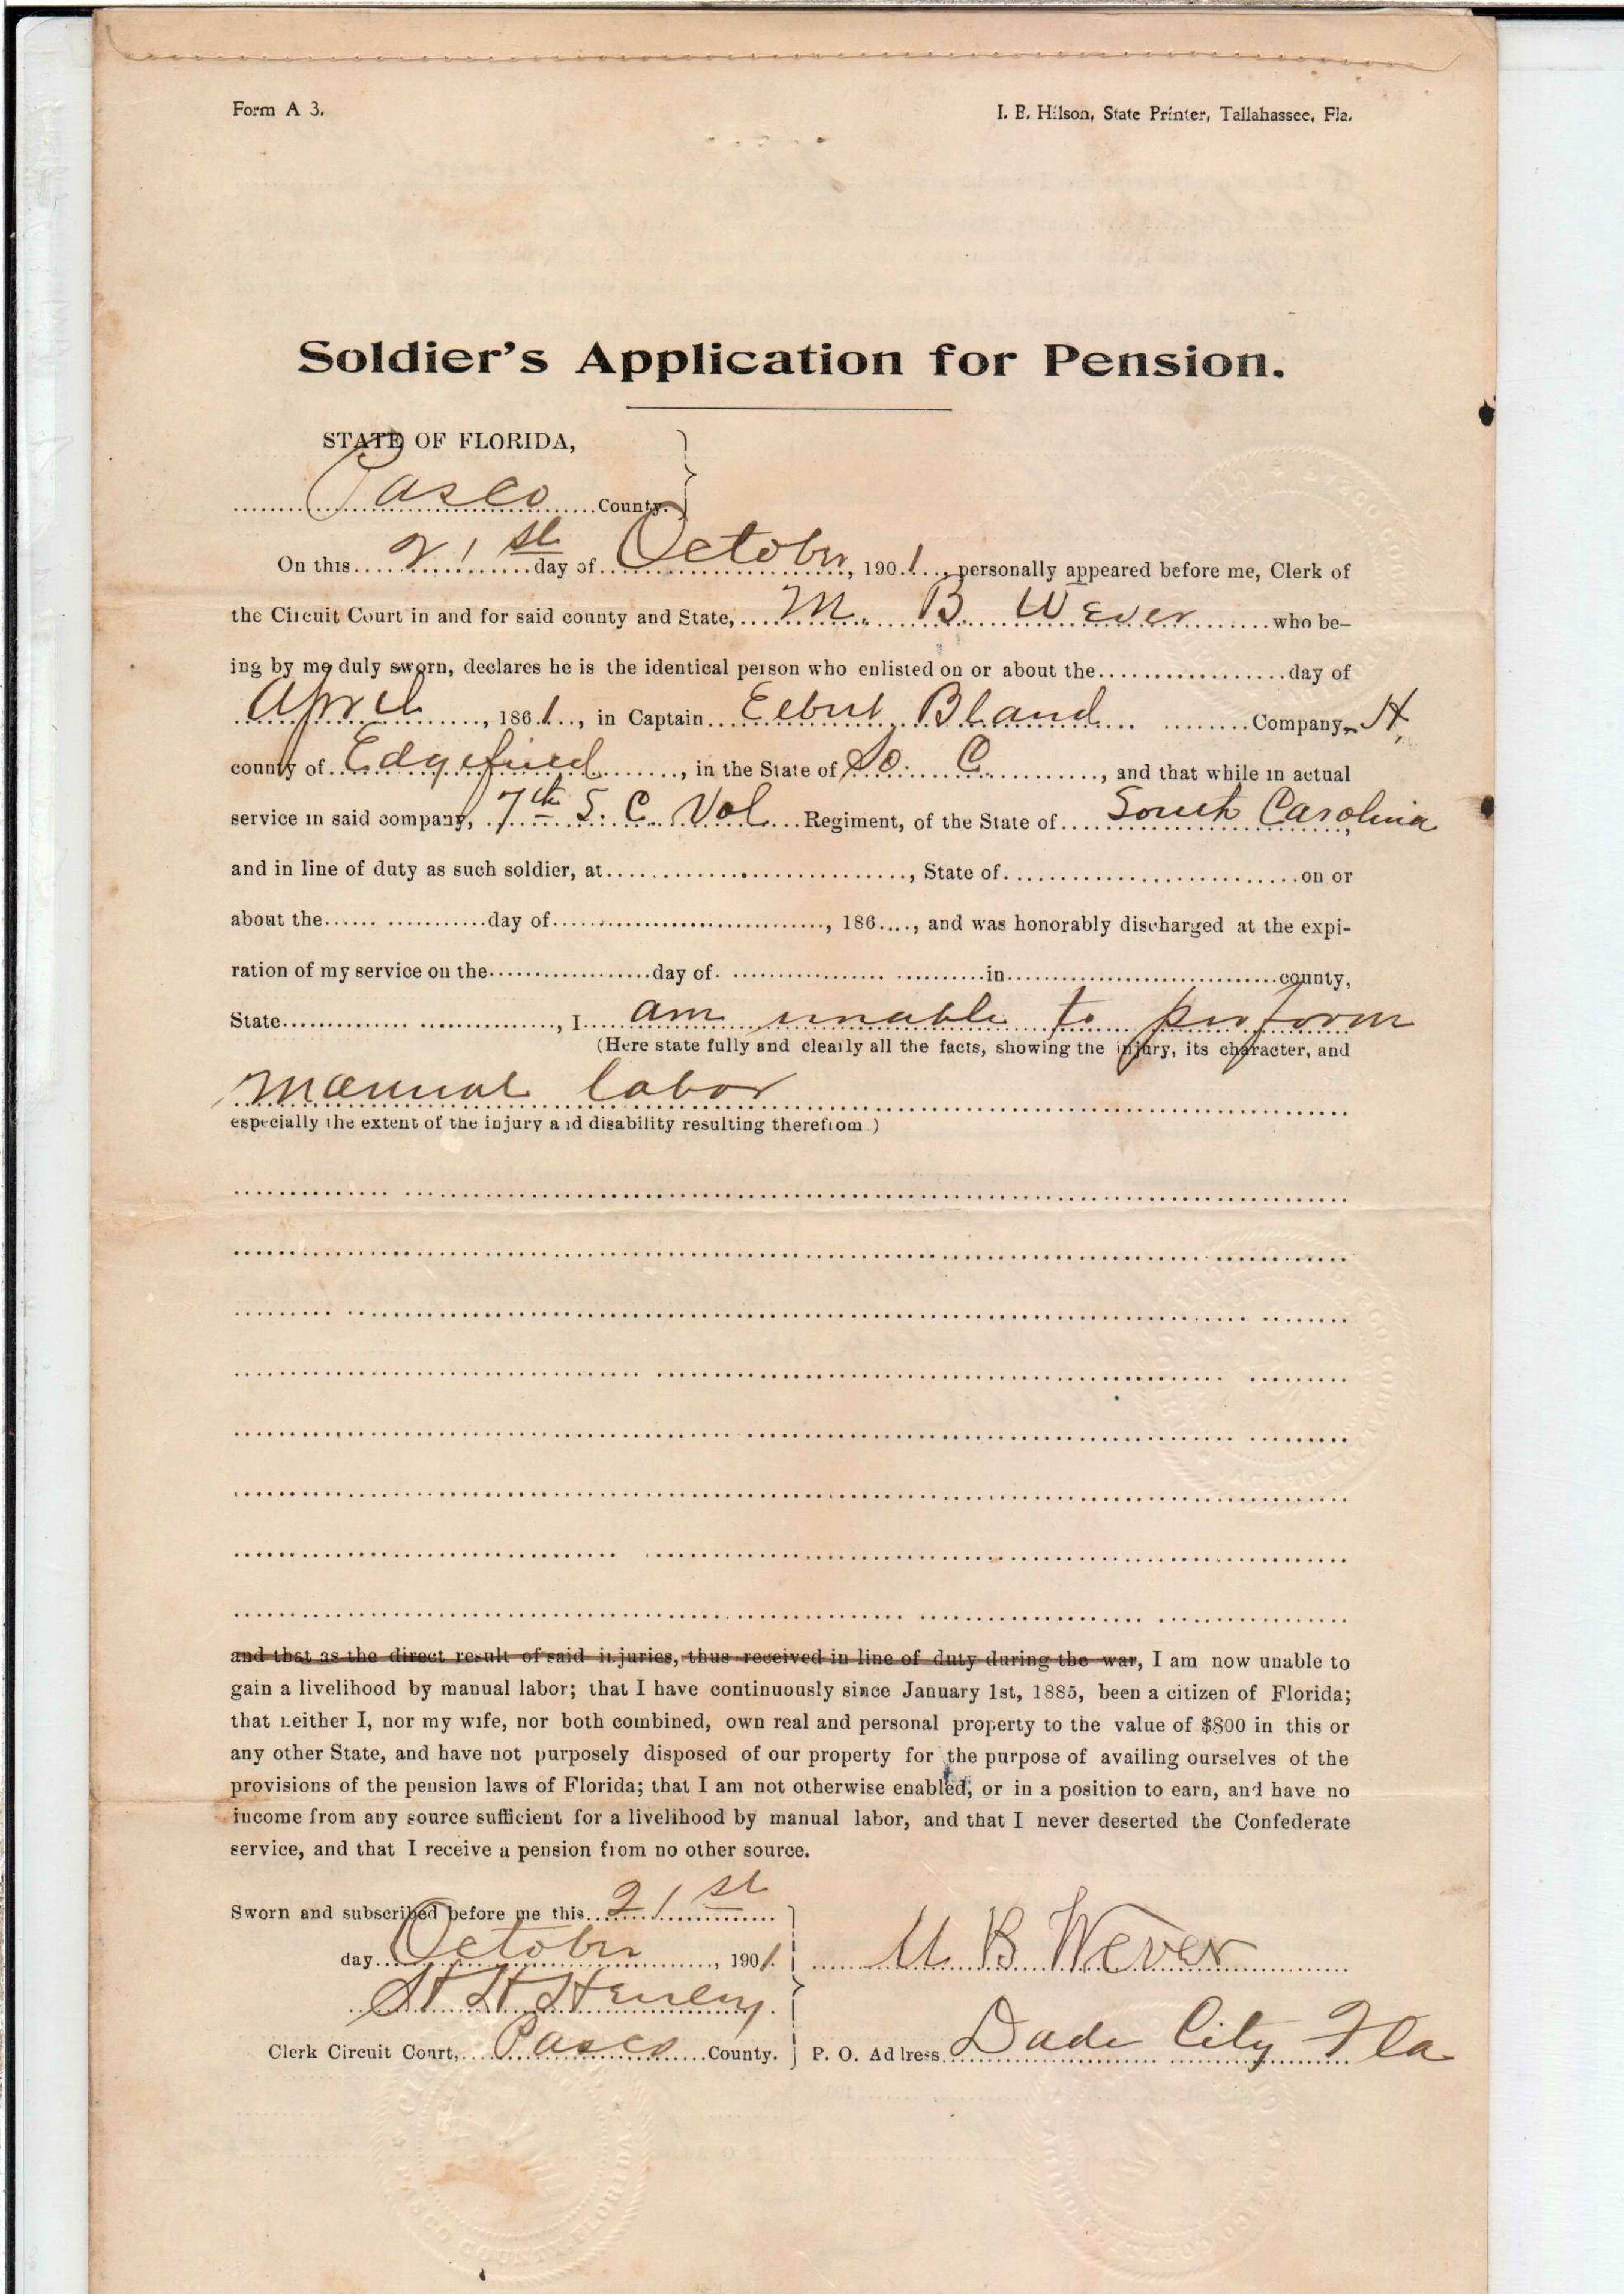 Form A 3.
I. E. Hilson, State Printer, Tallahassee, Fla.
Soldier's Application for Pension.
STATE OF FLORIDA,
Pasco County.
On this 21st day of October, 1901, personally appeared before me, Clerk of
the Circuit Court in and for said county and State, M. B. Wever who be-
ing by me duly sworn, declares he is the identical person who enlisted on or about the day of
April, 1861, in Captain Elbert Bland Company H
county of Edgefield, in the State of So. C., and that while in actual
service in said company, 7th S. C. Vol Regiment, of the State of South Carolina
and in line of duty as such soldier, at, State of on or
about the day of, 186, and was honorably discharged at the expi-
ration of my service on the day of in county,
State, I am unable to perform
(Here state fully and clearly all the facts, showing the injury, its character, and
manual labor
especially the extent of the injury and disability resulting therefrom.)
and that as the direct result of said injuries, thus received in line of duty during the war, I am now unable to
gain a livelihood by manual labor; that I have continuously since January 1st, 1885, been a citizen of Florida;
that neither I, nor my wife, nor both combined, own real and personal property to the value of $800 in this or
any other State, and have not purposely disposed of our property for the purpose of availing ourselves of the
provisions of the pension laws of Florida; that I am not otherwise enabled, or in a position to earn, and have no
income from any source sufficient for a livelihood by manual labor, and that I never deserted the Confederate
service, and that I receive a pension from no other source.
Sworn and subscribed before me this 21st
day October, 1901.
M B Wever
Clerk Circuit Court, Pasco County.
P. O. Address Dade City Fla